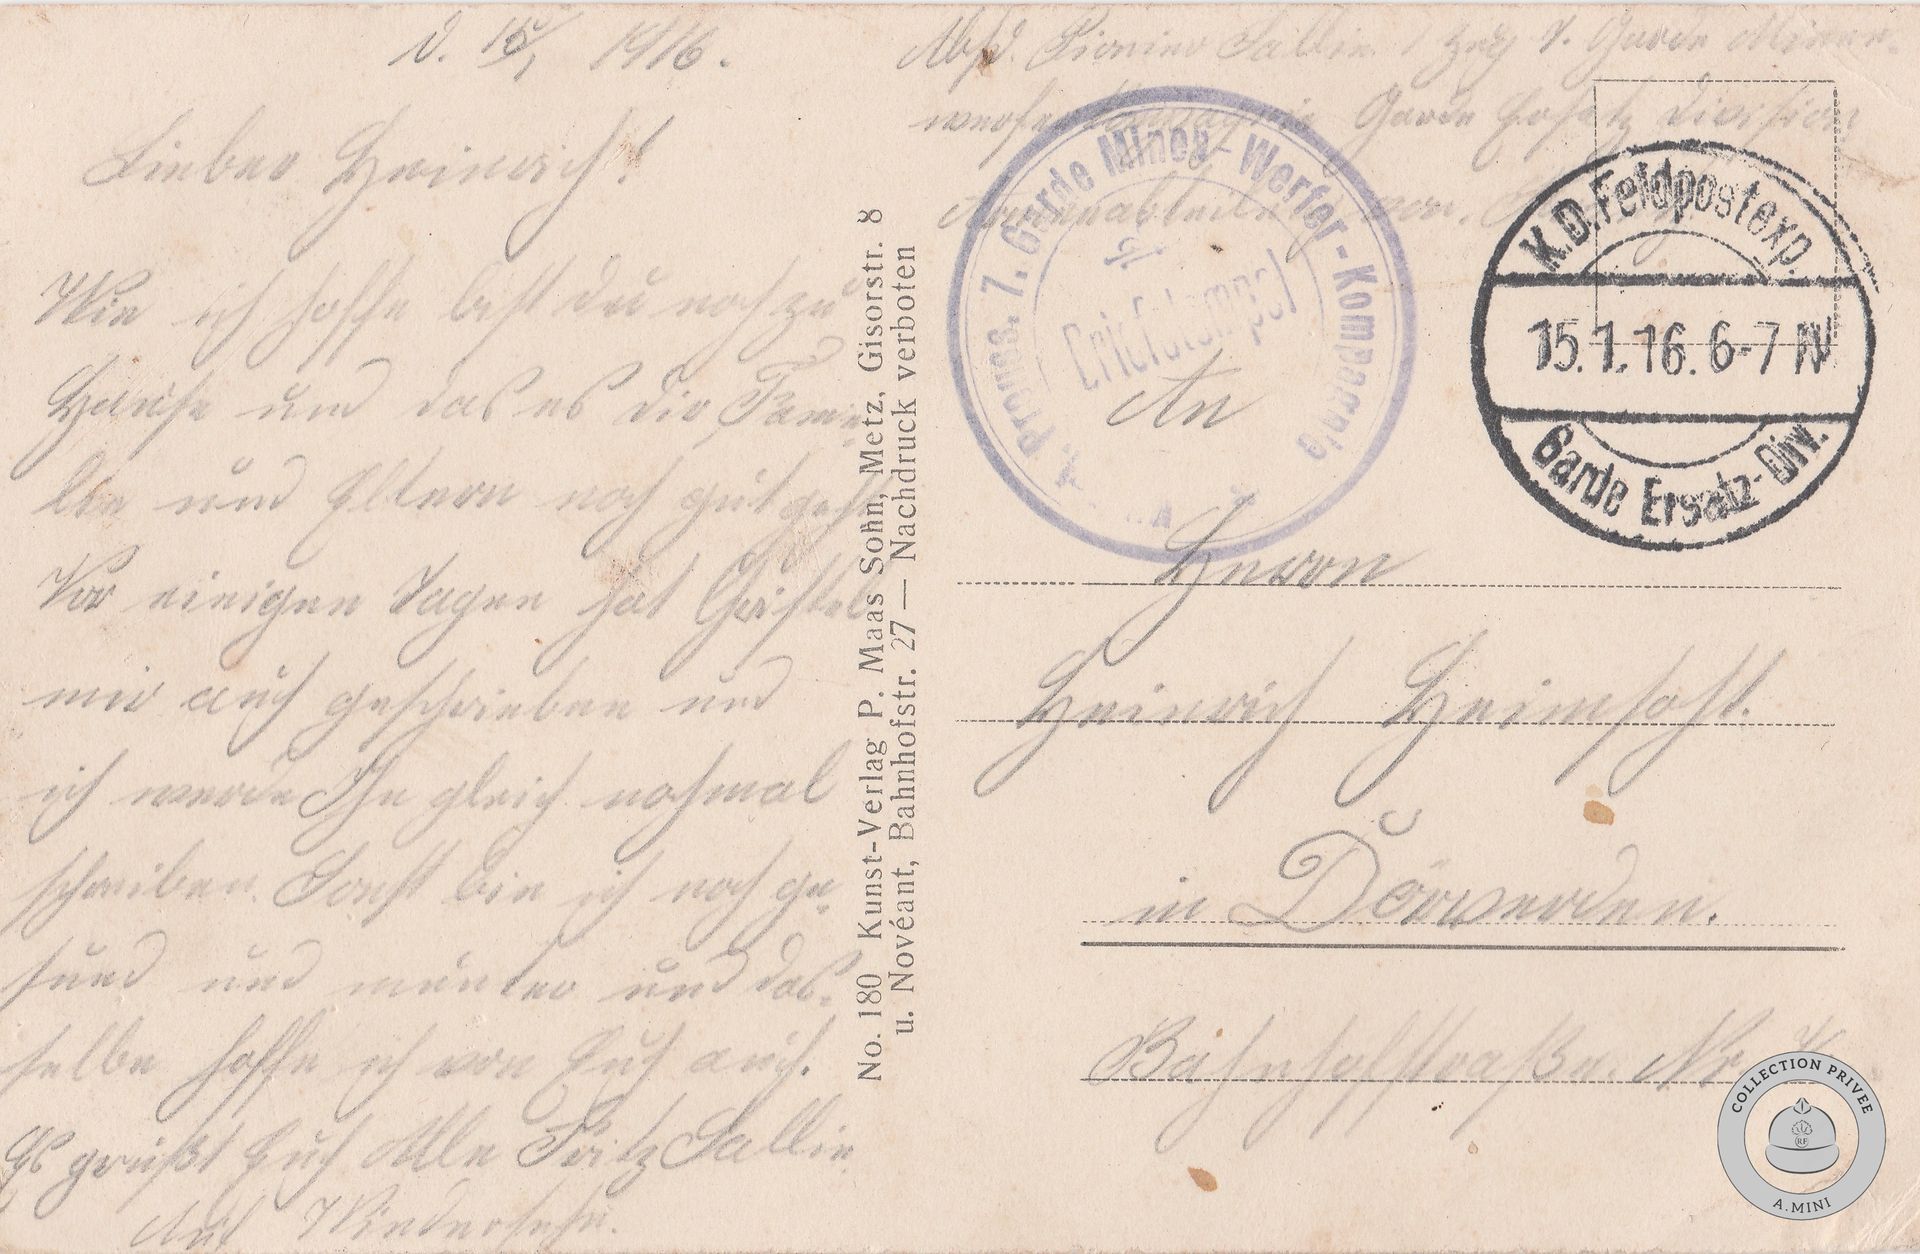 d. 15/1 1916.
Lieber Heinrich!
Wie ich hoffe bist du noch zu
Hause und das es die Fami-
lie und Eltern noch gut geht
Vor einigen Tagen hat Christel
mir auch geschrieben und
ich werde Ihr gleich nochmal
schreiben. Sonst bin ich noch ge-
sund und munter und das-
selbe hoffe ich von Euch auch.
Es grüßt Euch Alle Fritz Sallie
Auf Wiedersehn.
No. 180 Kunst-Verlag P. Maas Sohn, Metz, Gisorstr. 8
u. Novéant, Bahnhofstr. 27 — Nachdruck verboten
Absd. Pionier Sallie / Zug 7. Garde Minen-
werfer Kompagnie Garde Ersatz Division
Armeeabteilung von
K. Preuss. 7. Garde Minen-Werfer-Kompagnie
Briefstempel
K.D. Feldpostexp.
15.1.16. 6-7 N
Garde Ersatz-Div.
An
Herrn
Heinrich Heimsoht.
in Dörverden.
Bahnhofstraße. Nr
COLLECTION PRIVEE
RF
A.MINI